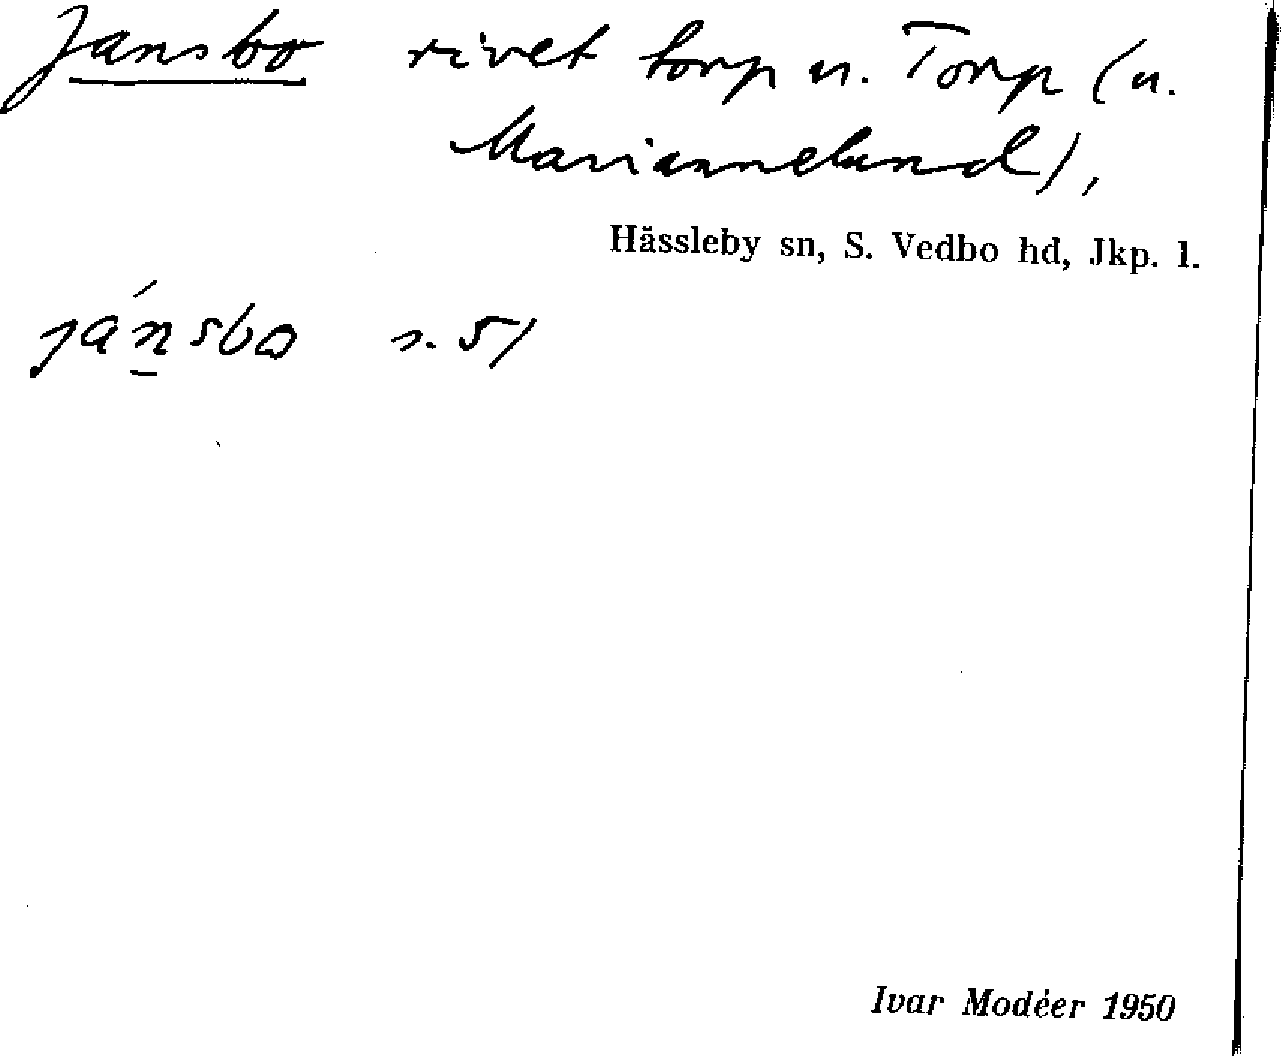 Jansbo rivet torp u. Torp (u.
Mariannelund),
Hässleby sn, S. Vedbo hd, Jkp. l.
jánsbo s. 51
Ivar Modéer 1950